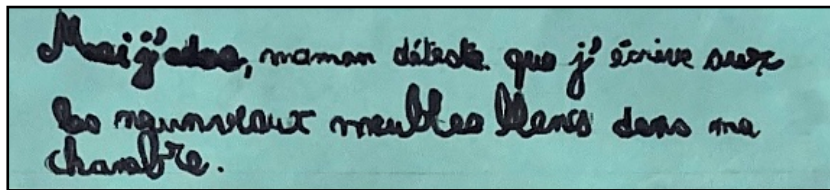 Moi j'adore, maman déteste que j'écrive sur
les nouveaux meubles blancs dans ma
chambre.